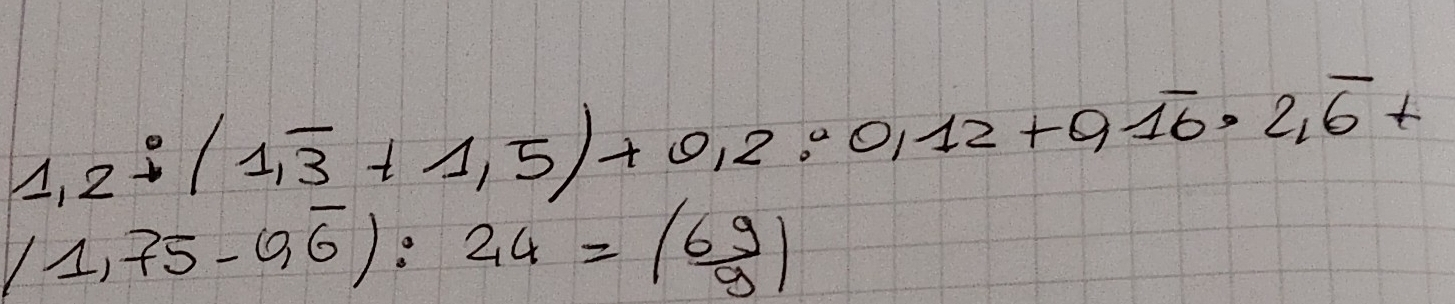 1,2 : (1,3̅ + 1,5) + 0,2 : 0,12 + 0,16̅ · 2,6̅ +
(1,75 - 0,6̅) : 2,4 = (69/9)